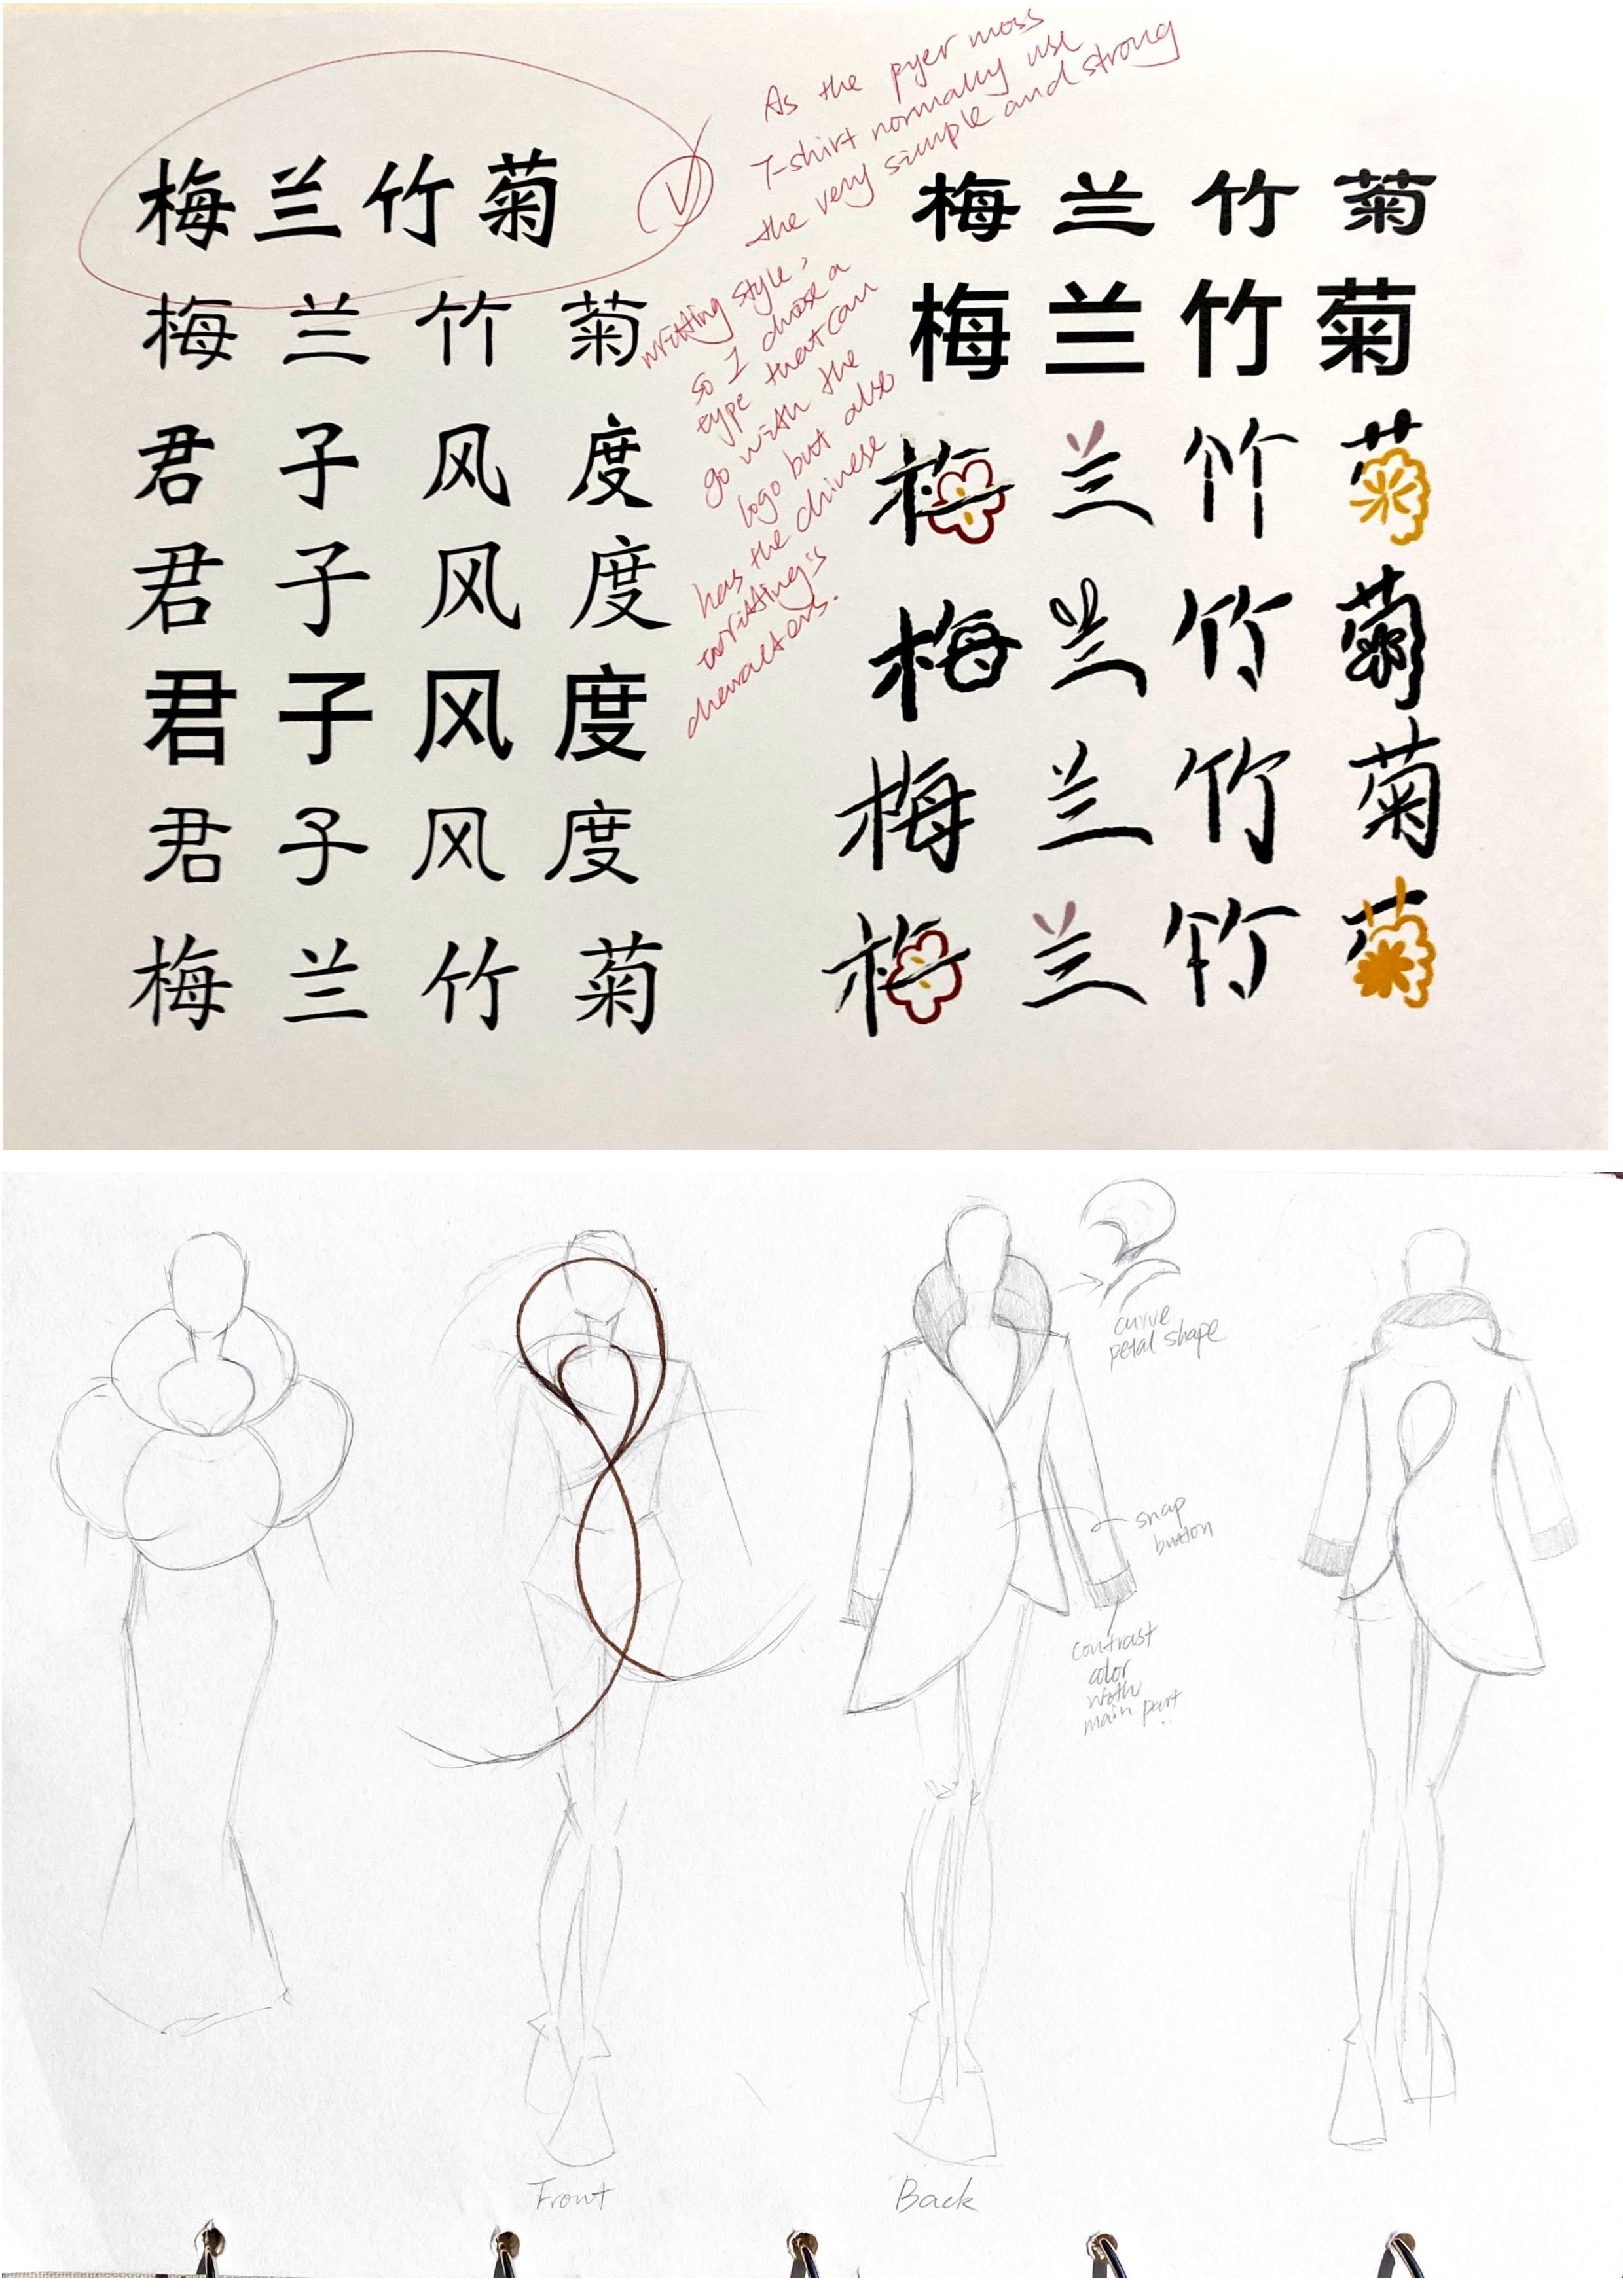 梅兰竹菊
梅 兰 竹 菊
君 子 风 度
君 子 风 度
君 子 风 度
君 子 风 度
梅 兰 竹 菊
As the pyer moss
T-shirt normally use
the very simple and strong
writting style,
so I chose a
type that can
go with the
logo but also
has the chinese
writting's
characters.
梅 兰 竹 菊
梅 兰 竹 菊
梅 兰 竹 菊
梅 兰 竹 菊
梅 兰 竹 菊
梅 兰 竹 菊
curve
petal shape
snap
button
contrast
color
with
main part
Front
Back